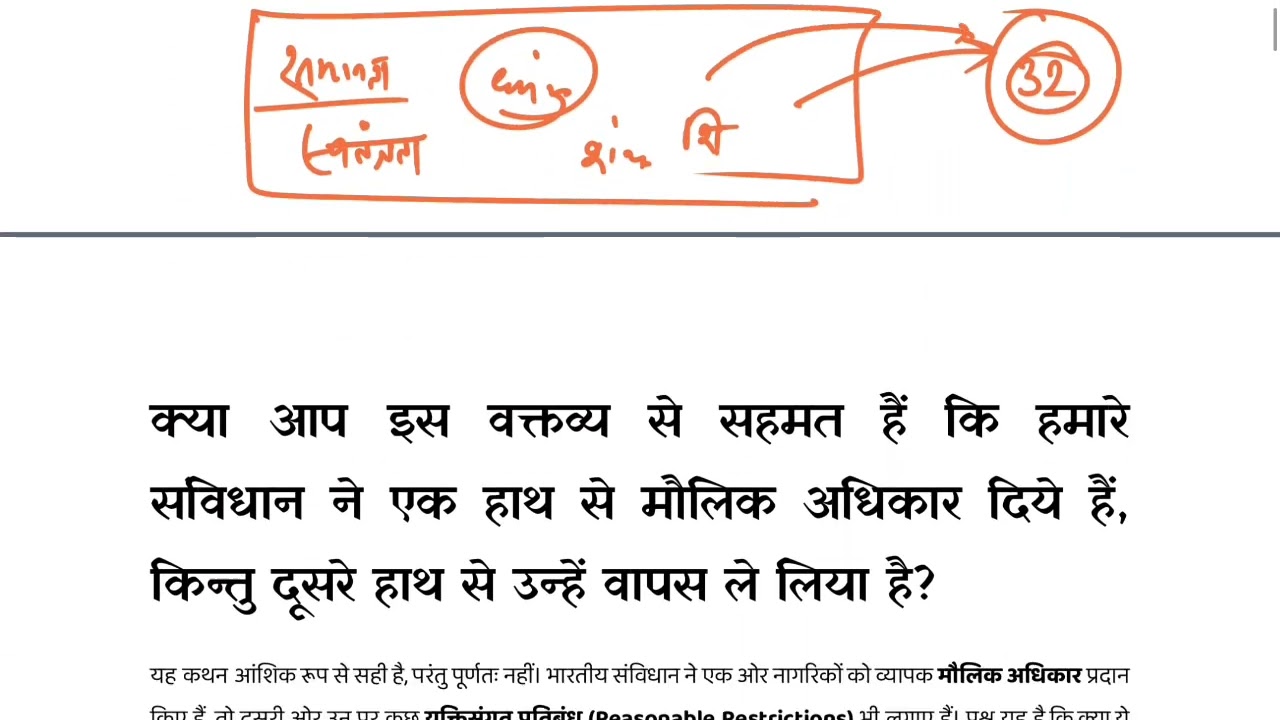 समानता
स्वतंत्रता
शि
32
क्या आप इस वक्तव्य से सहमत हैं कि हमारे
संविधान ने एक हाथ से मौलिक अधिकार दिये हैं,
किन्तु दूसरे हाथ से उन्हें वापस ले लिया है?
यह कथन आंशिक रूप से सही है, परंतु पूर्णतः नहीं। भारतीय संविधान ने एक ओर नागरिकों को व्यापक मौलिक अधिकार प्रदान
किए हैं, तो दूसरी ओर उन पर कुछ युक्तिसंगत प्रतिबंध (Reasonable Restrictions) भी लगाए हैं। प्रश्न यह है कि क्या ये